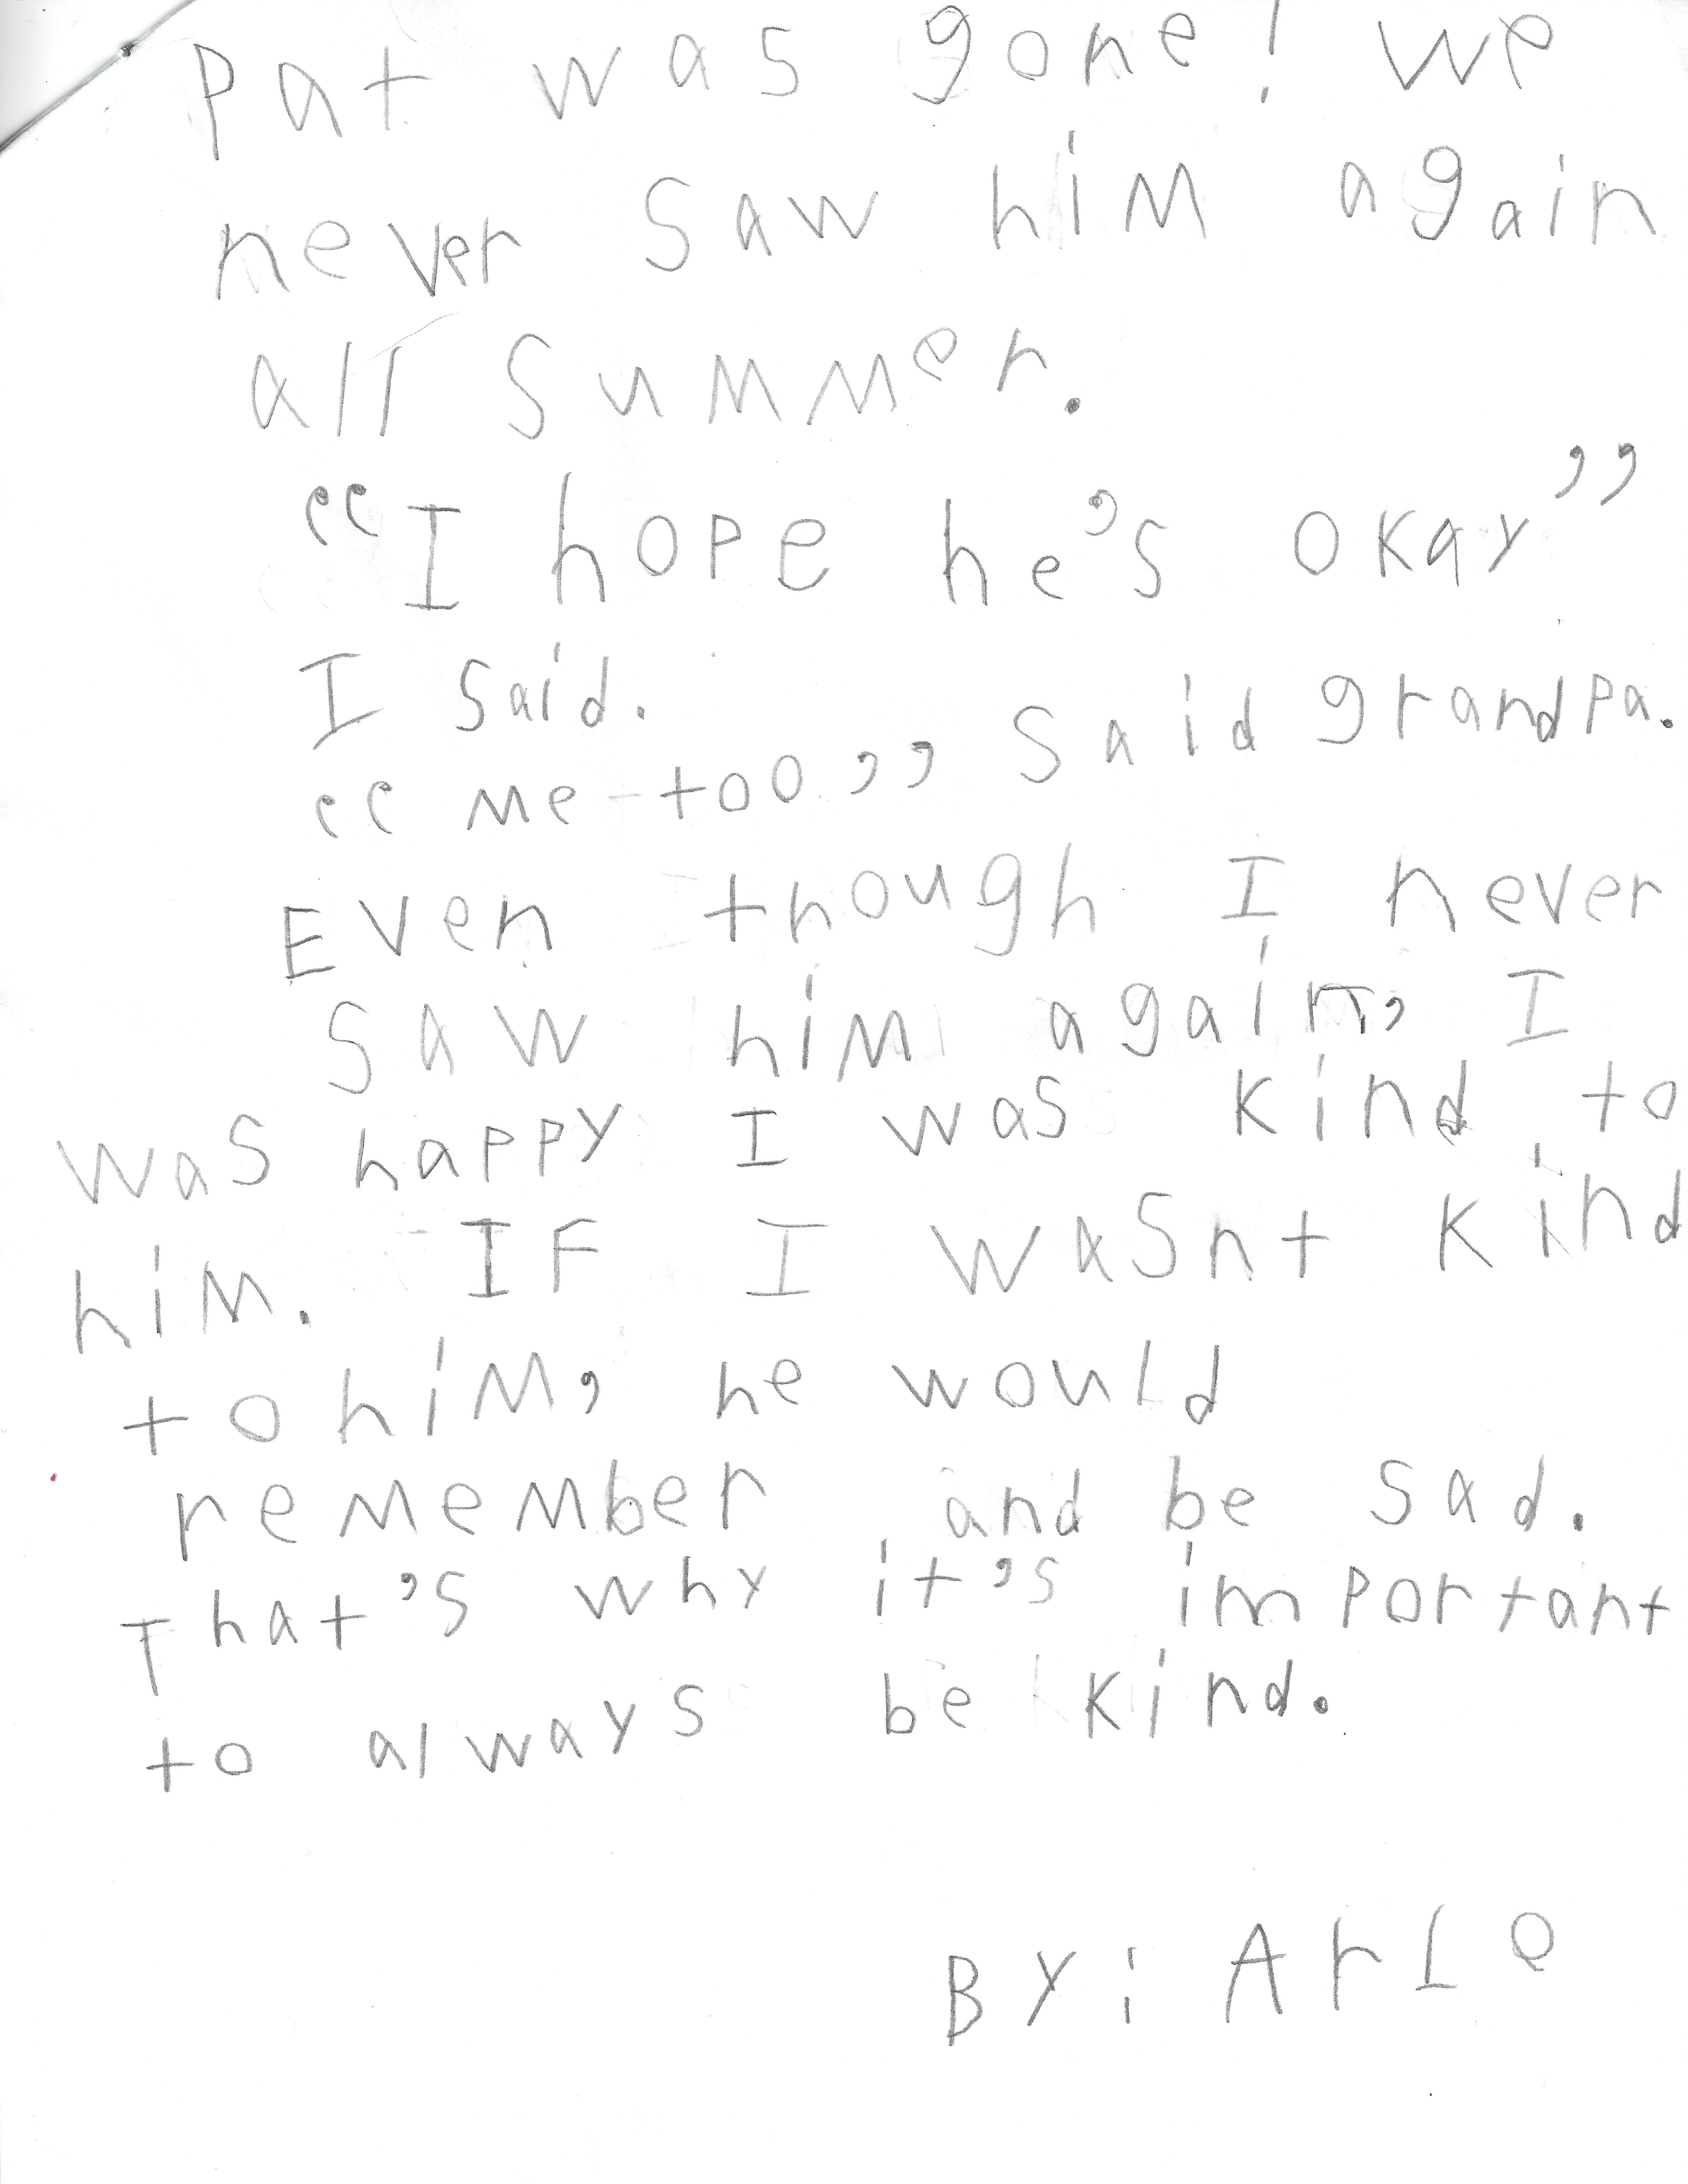 Pat was gone! We
never saw him again
all summer.
“I hope he's okay”
I said.
“me too” said grandpa.
Even though I never
saw him again, I
was happy I was kind to
him. IF I wasnt kind
to him, he would
remember and be sad.
That's why it's important
to always be kind.
By: Arlo